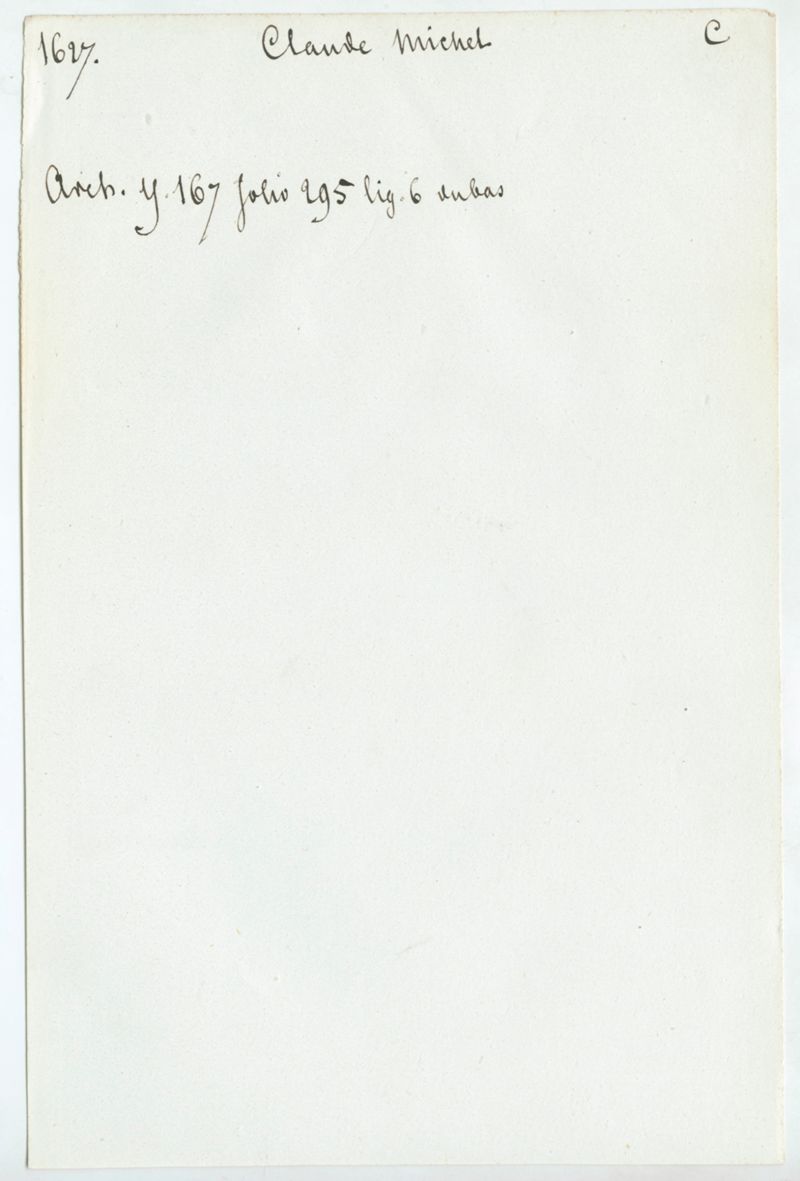 1627. Claude Michel C
Arch. Y. 167 folio 295 lig. 6 du bas